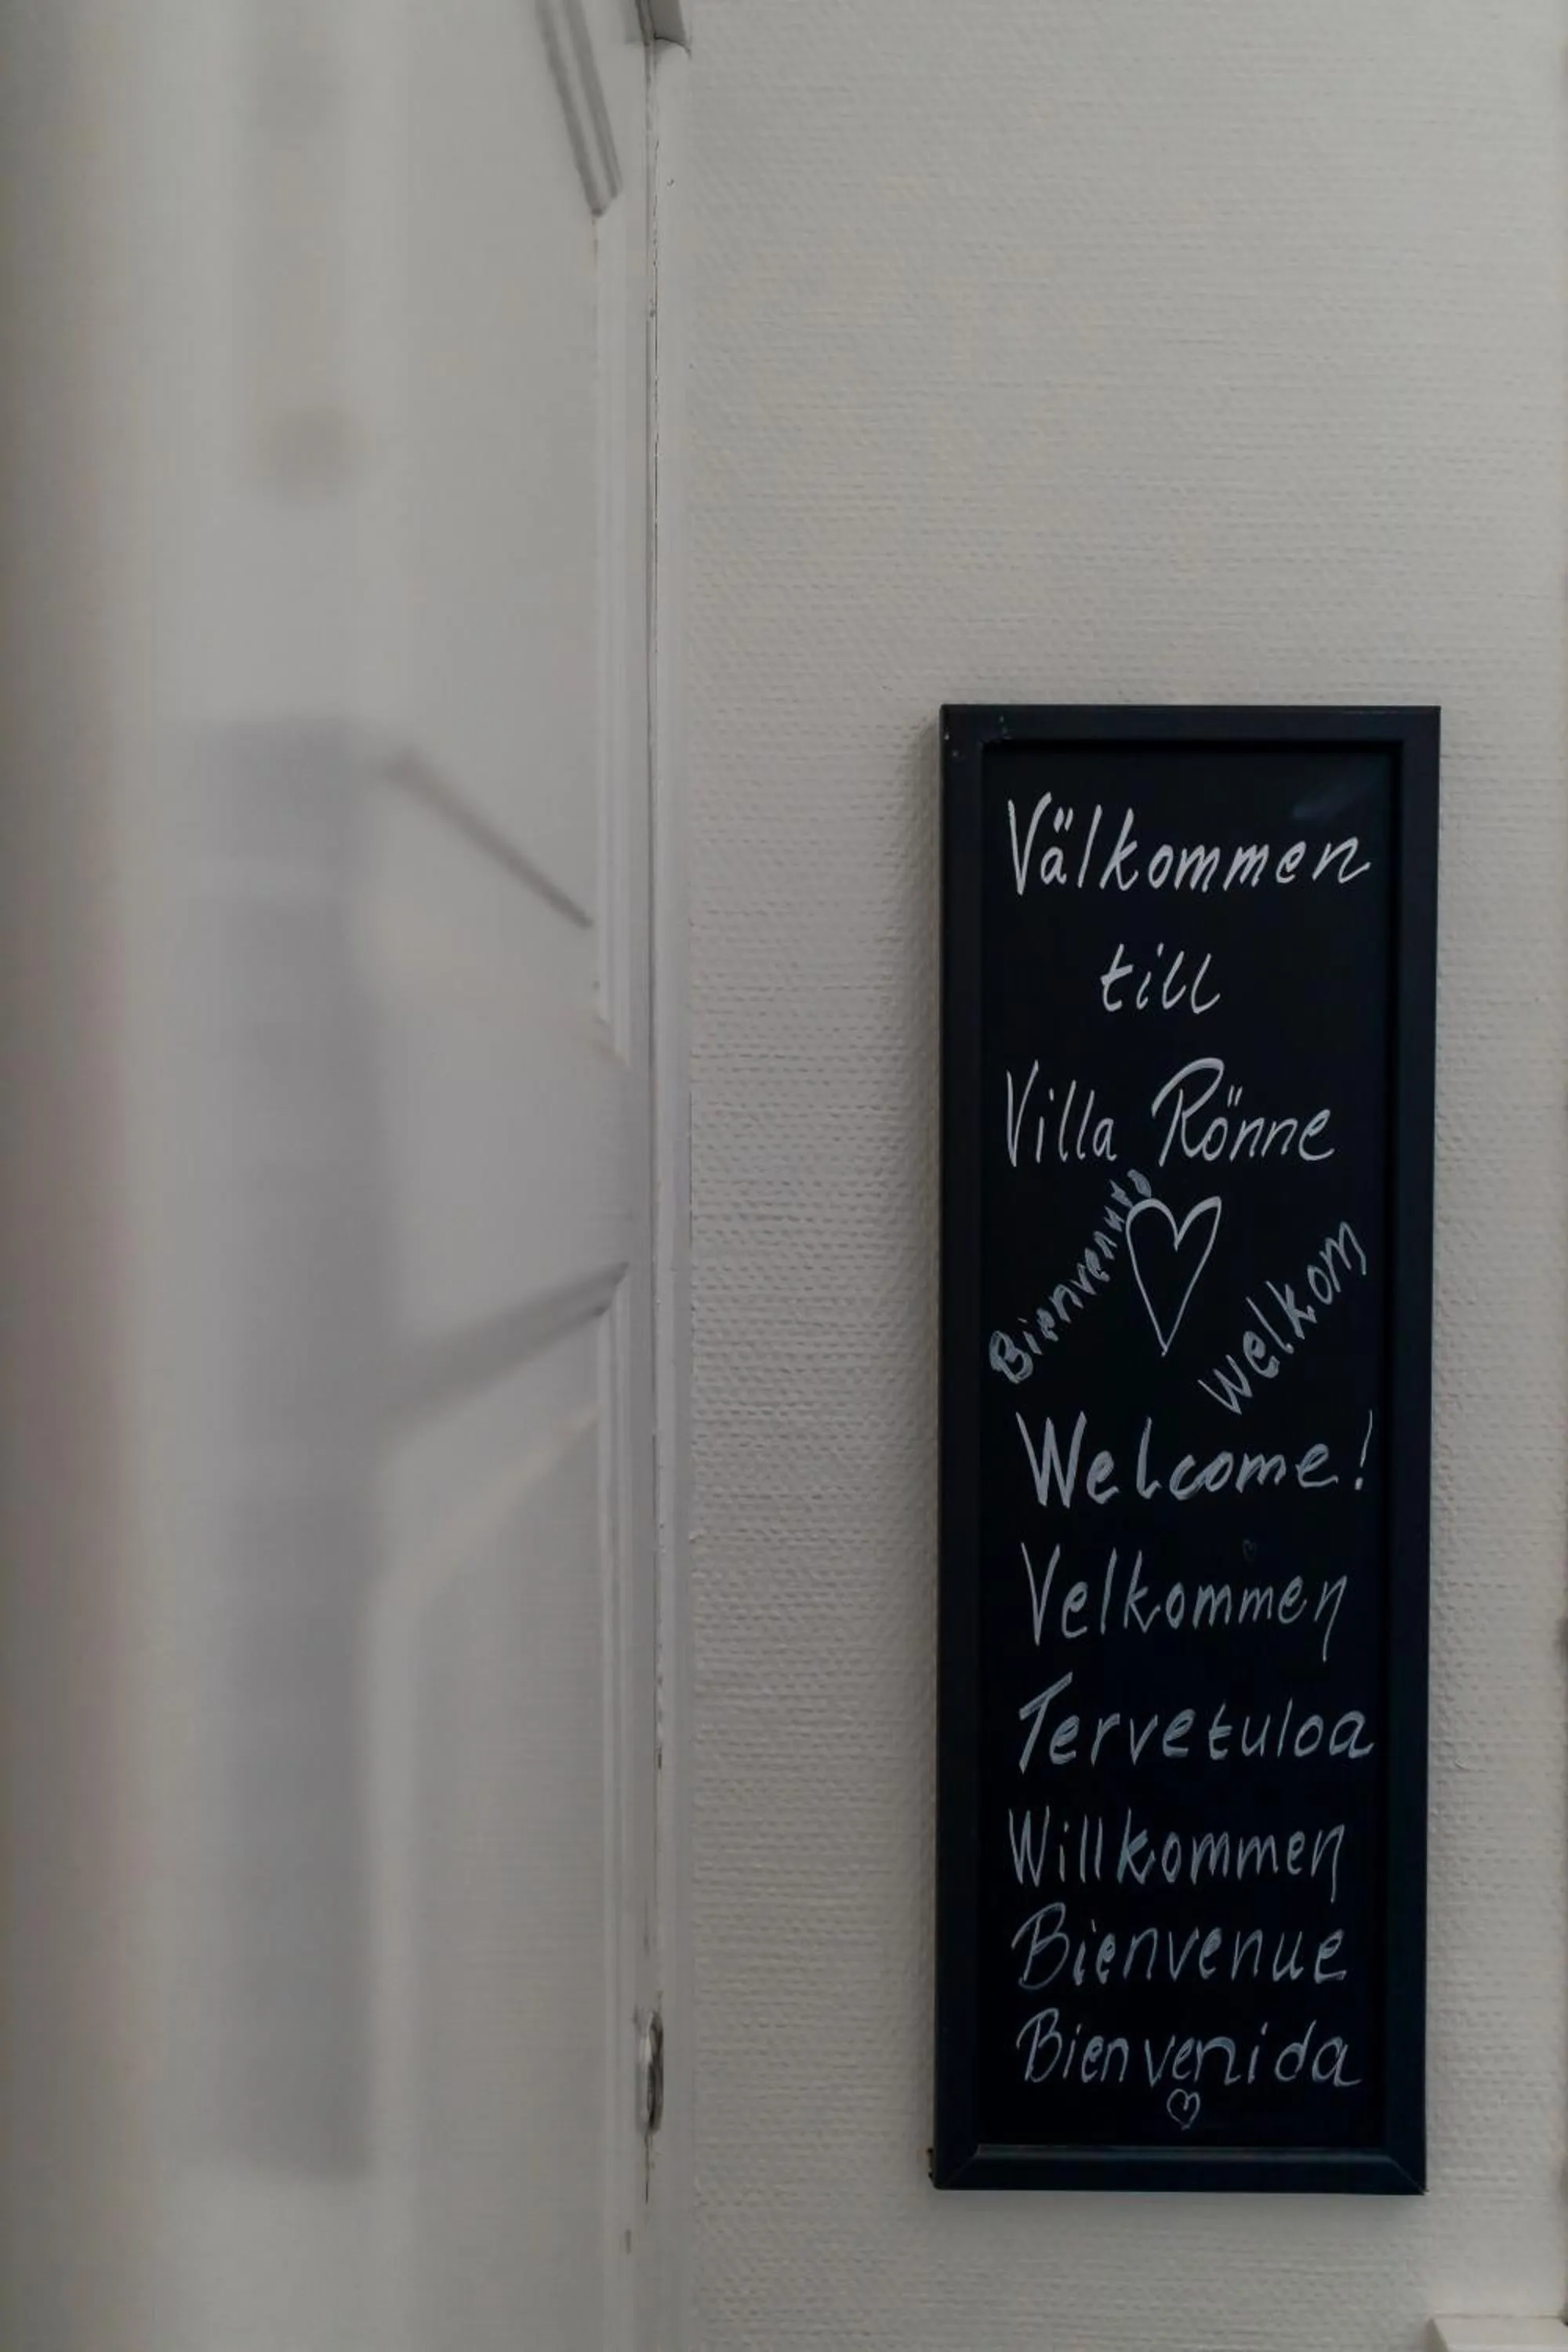 Välkommen
till
Villa Rönne
Bienvenuto
Welkom
Welcome!
Velkommen
Tervetuloa
Willkommen
Bienvenue
Bienvenida